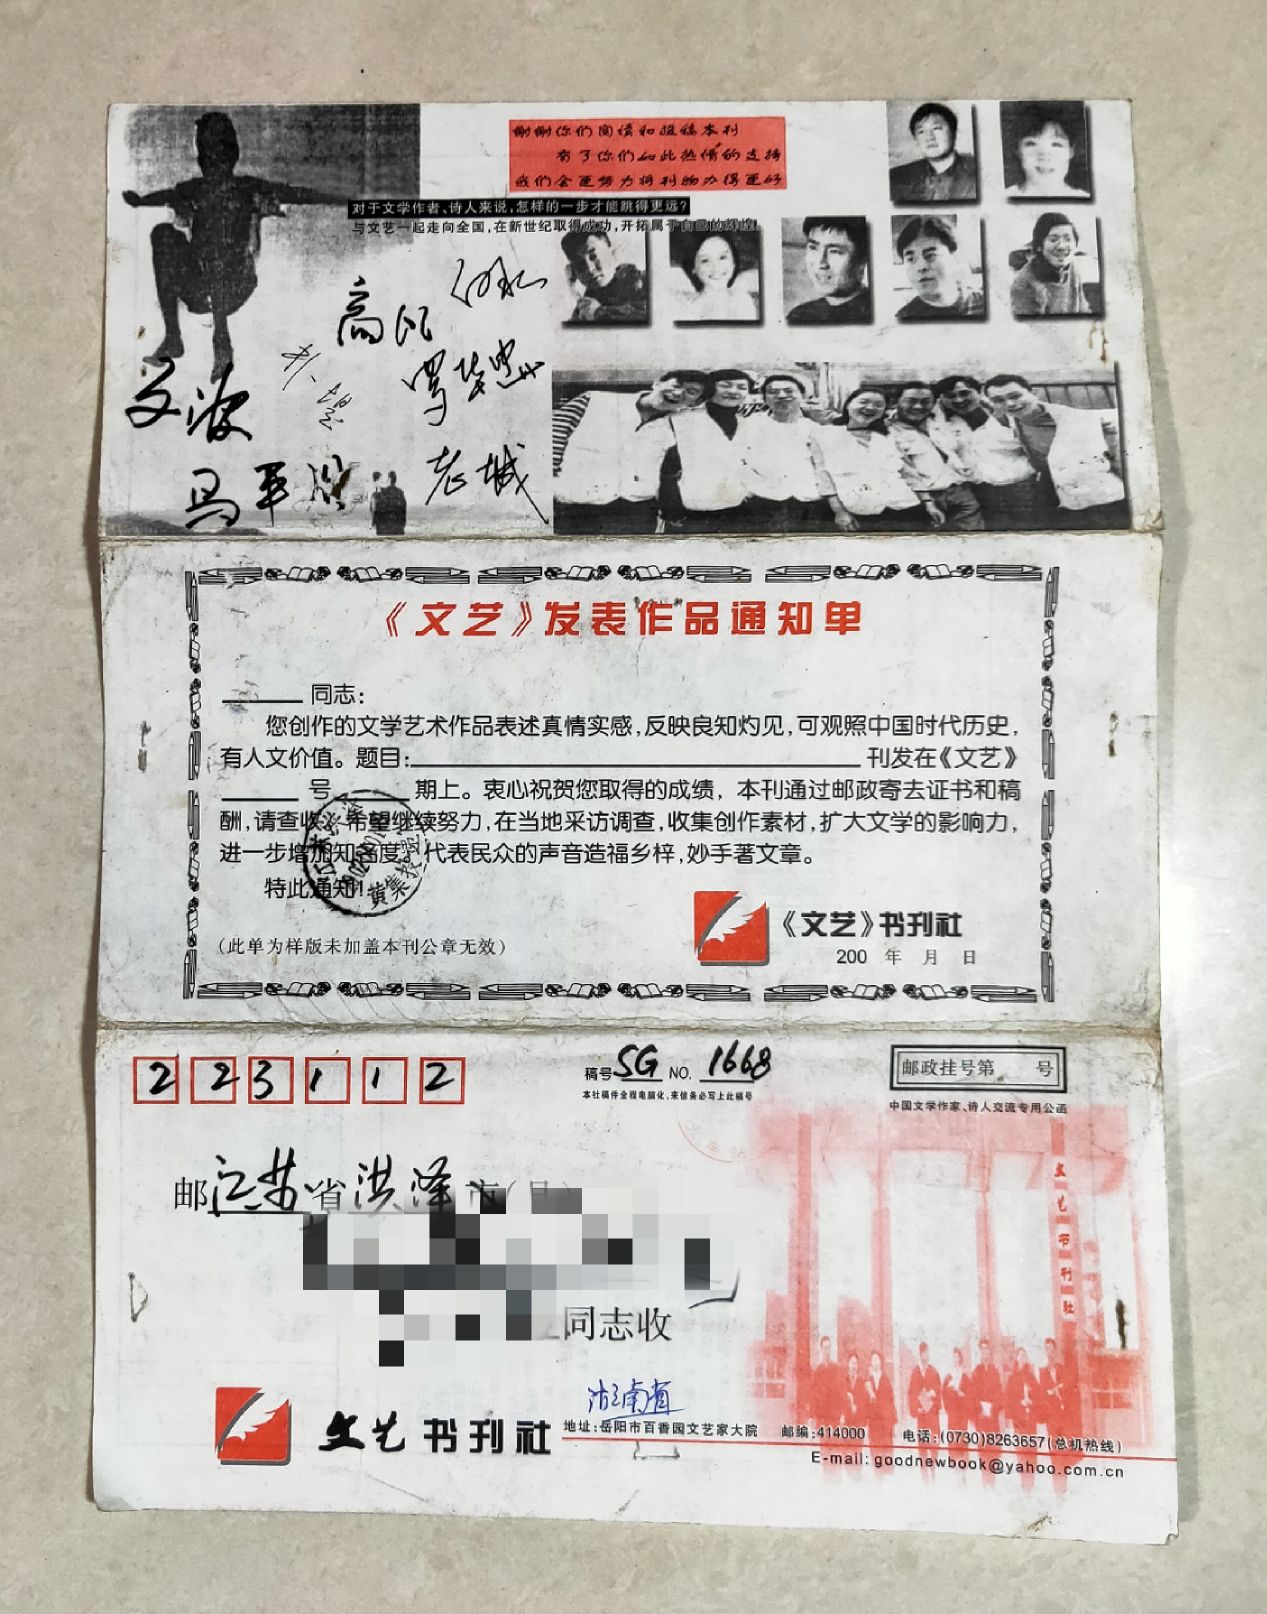 谢谢你们阅读和投稿本刊
有了你们如此热情的支持
我们会更努力将刊物办得更好
对于文学作者、诗人来说，怎样的一步才能跳得更远？
与文艺一起走向全国，在新世纪取得成功，开拓属于自己的辉煌。
文波
老城
《文艺》发表作品通知单
同志：
您创作的文学艺术作品表述真情实感，反映良知灼见，可观照中国时代历史，
有人文价值。题目： 刊发在《文艺》
号 期上。衷心祝贺您取得的成绩，本刊通过邮政寄去证书和稿
酬，请查收。希望继续努力，在当地采访调查，收集创作素材，扩大文学的影响力，
进一步增加知名度，代表民众的声音造福乡梓，妙手著文章。
特此通知！
黄集
（此单为样版未加盖本刊公章无效）
《文艺》书刊社
200 年 月 日
223112
稿号 SG NO. 1668
本社稿件全程电脑化，来信务必写上此稿号
邮政挂号第 号
中国文学作家、诗人交流专用公函
邮 江苏 省 洪泽 市（县）
同志收
文艺书刊社
文艺书刊社
湖南省
地址：岳阳市百香园文艺家大院 邮编：414000 电话：(0730)8263657(总机热线)
E-mail: goodnewbook@yahoo.com.cn